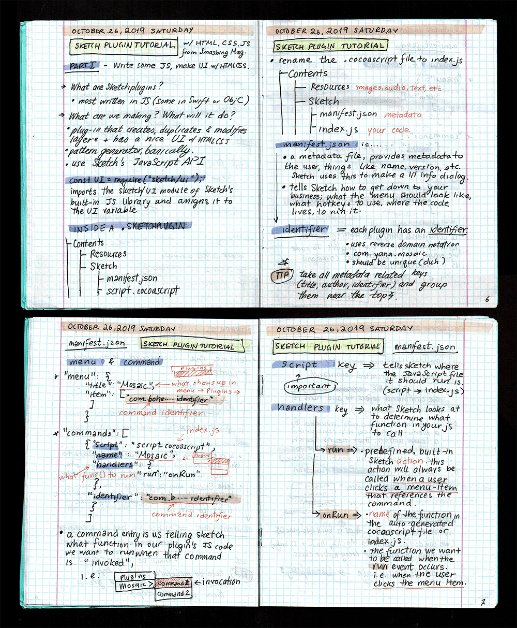 OCTOBER 26, 2019 SATURDAY
SKETCH PLUGIN TUTORIAL w/ HTML, CSS, JS
from Smashing Mag.
PART I - Write some JS, make UI w/ HTML/CSS.
→ What are Sketch plugins?
• most written in JS (some in Swift or Obj C)
→ What are we making? What will it do?
• plug-in that creates, duplicates & modifies
layers + has a nice UI w/ HTML/CSS
• pattern generator, basically.
• use Sketch's JavaScript API
const UI = require("sketch/ui");
imports the sketch/UI module of Sketch's
built-in JS library and assigns it to
the UI variable
INSIDE A .SKETCHPLUGIN
Contents
Resources
Sketch
manifest.json
script.cocoascript
OCTOBER 26, 2019 SATURDAY
SKETCH PLUGIN TUTORIAL
• rename the .cocoascript file to index.js
Contents
Resources images, audio, text, etc.
Sketch
manifest.json metadata
index.js your code
manifest.json is...
• a metadata file, provides metadata to
the user, things like name, version, etc.
Sketch uses this to make a lil info dialog.
• tells Sketch how to get down to your
business; what the menu should look like,
what hotkeys to use, where the code
lives, to run it.
identifier = each plugin has an identifier
• uses reverse domain notation
• com.yana.mosaic
• should be unique (duh)
TIP take all metadata related keys
(title, author, identifier) and group
them near the top
6
OCTOBER 26, 2019 SATURDAY
manifest.json SKETCH PLUGIN TUTORIAL
menu & command
"menu": {
"title": "Mosaic", ← what shows up in
menu → Plugins →
"item": [
command identifier
]
}
index.js
"commands": [
{ "script": "script.cocoascript"
"name": "Mosaic",
"handlers": {
what func() to run "run": "onRun"
},
"identifier": "com.b---- identifier"
command identifier
}
]
• a command entry is us telling sketch
what function in our plugin's JS code
we want to run when that command
is "invoked";
i.e. Plugins
Mosaic > command 1 ← invocation
command 2
OCTOBER 26, 2019 SATURDAY
SKETCH PLUGIN TUTORIAL manifest.json
script key → tells sketch where
the JavaScript file
it should run is.
important (script → index.js)
handlers key → what Sketch looks at
to determine what
function in your js
to call
run → predefined, built-in
Sketch action. this
action will always be
called when a user
clicks a menu-item
that references the
command.
onRun → name of the function in
the auto-generated
cocoascript file or
index.js.
• the function we want
to be called when the
run event occurs.
i.e. when the user
clicks the menu item.
7